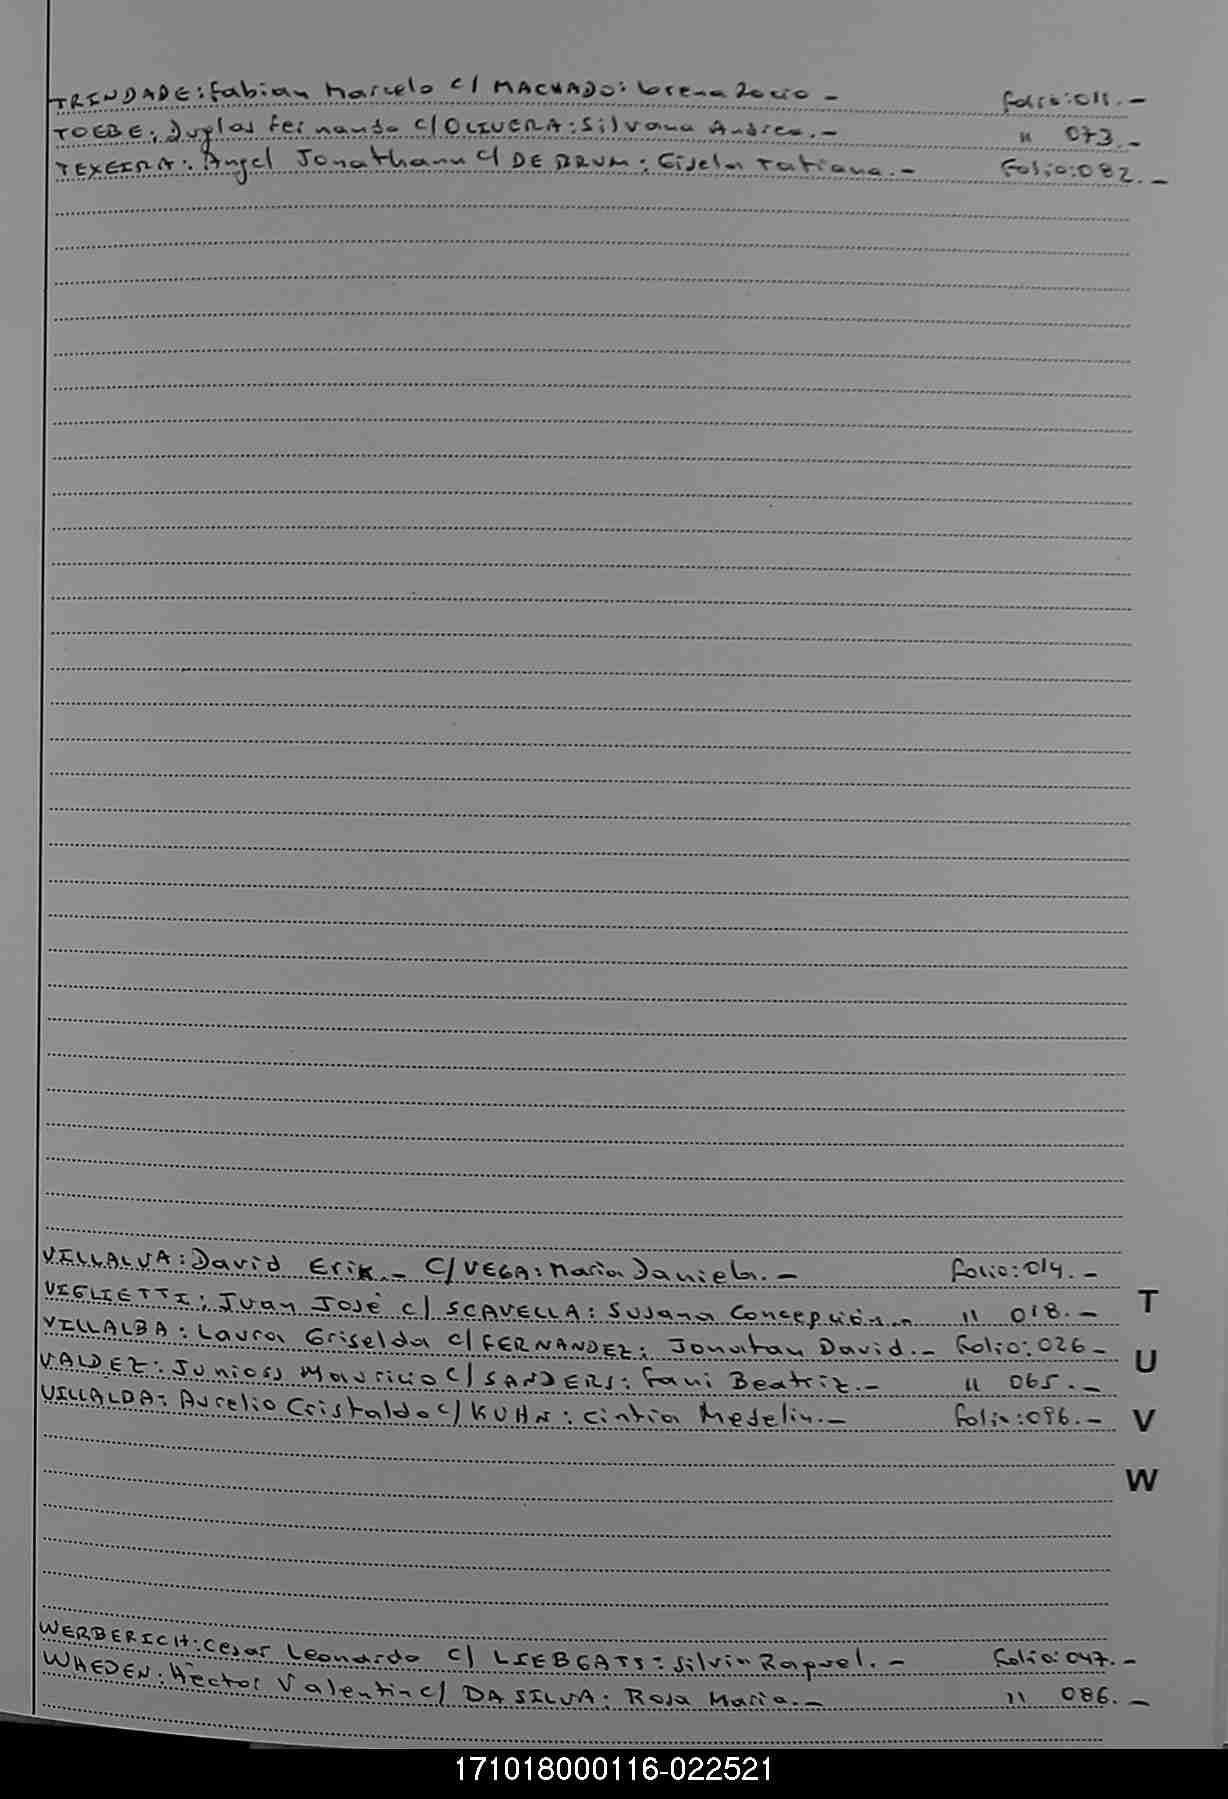 TRINDADE: Fabian Marcelo c/ MACHADO: Lorena Rocio - Folio: 011.-
TOEBE: Duglas Fernando c/ OLIVERA: Silvana Andrea.- " 073.-
TEXEIRA: Angel Jonathann c/ DE BRUM: Gisela Tatiana.- Folio: 082.-
VILLALVA: David Erik.- C/ VEGA: Maria Daniela.- Folio: 014.-
VIGLIETTI: Juan José c/ SCAVELLA: Susana Concepción.- " 018.-
VILLALBA: Laura Griselda c/ FERNANDEZ: Jonatan David.- Folio: 026-
VALDEZ: Mauricio c/ SANDERS: Fani Beatriz.- " 065.-
VILLALBA: Aurelio Cristaldo c/ KUHN: Cintia Medelin.- Folio: 096.-
T
U
V
W
WERBERICH: Cesar Leonardo c/ LIEBGATS: Silvia Raquel.- Folio: 047.-
WHEDEN: Héctor Valentin c/ DA SILVA: Rosa Maria.- " 086.-
171018000116-022521